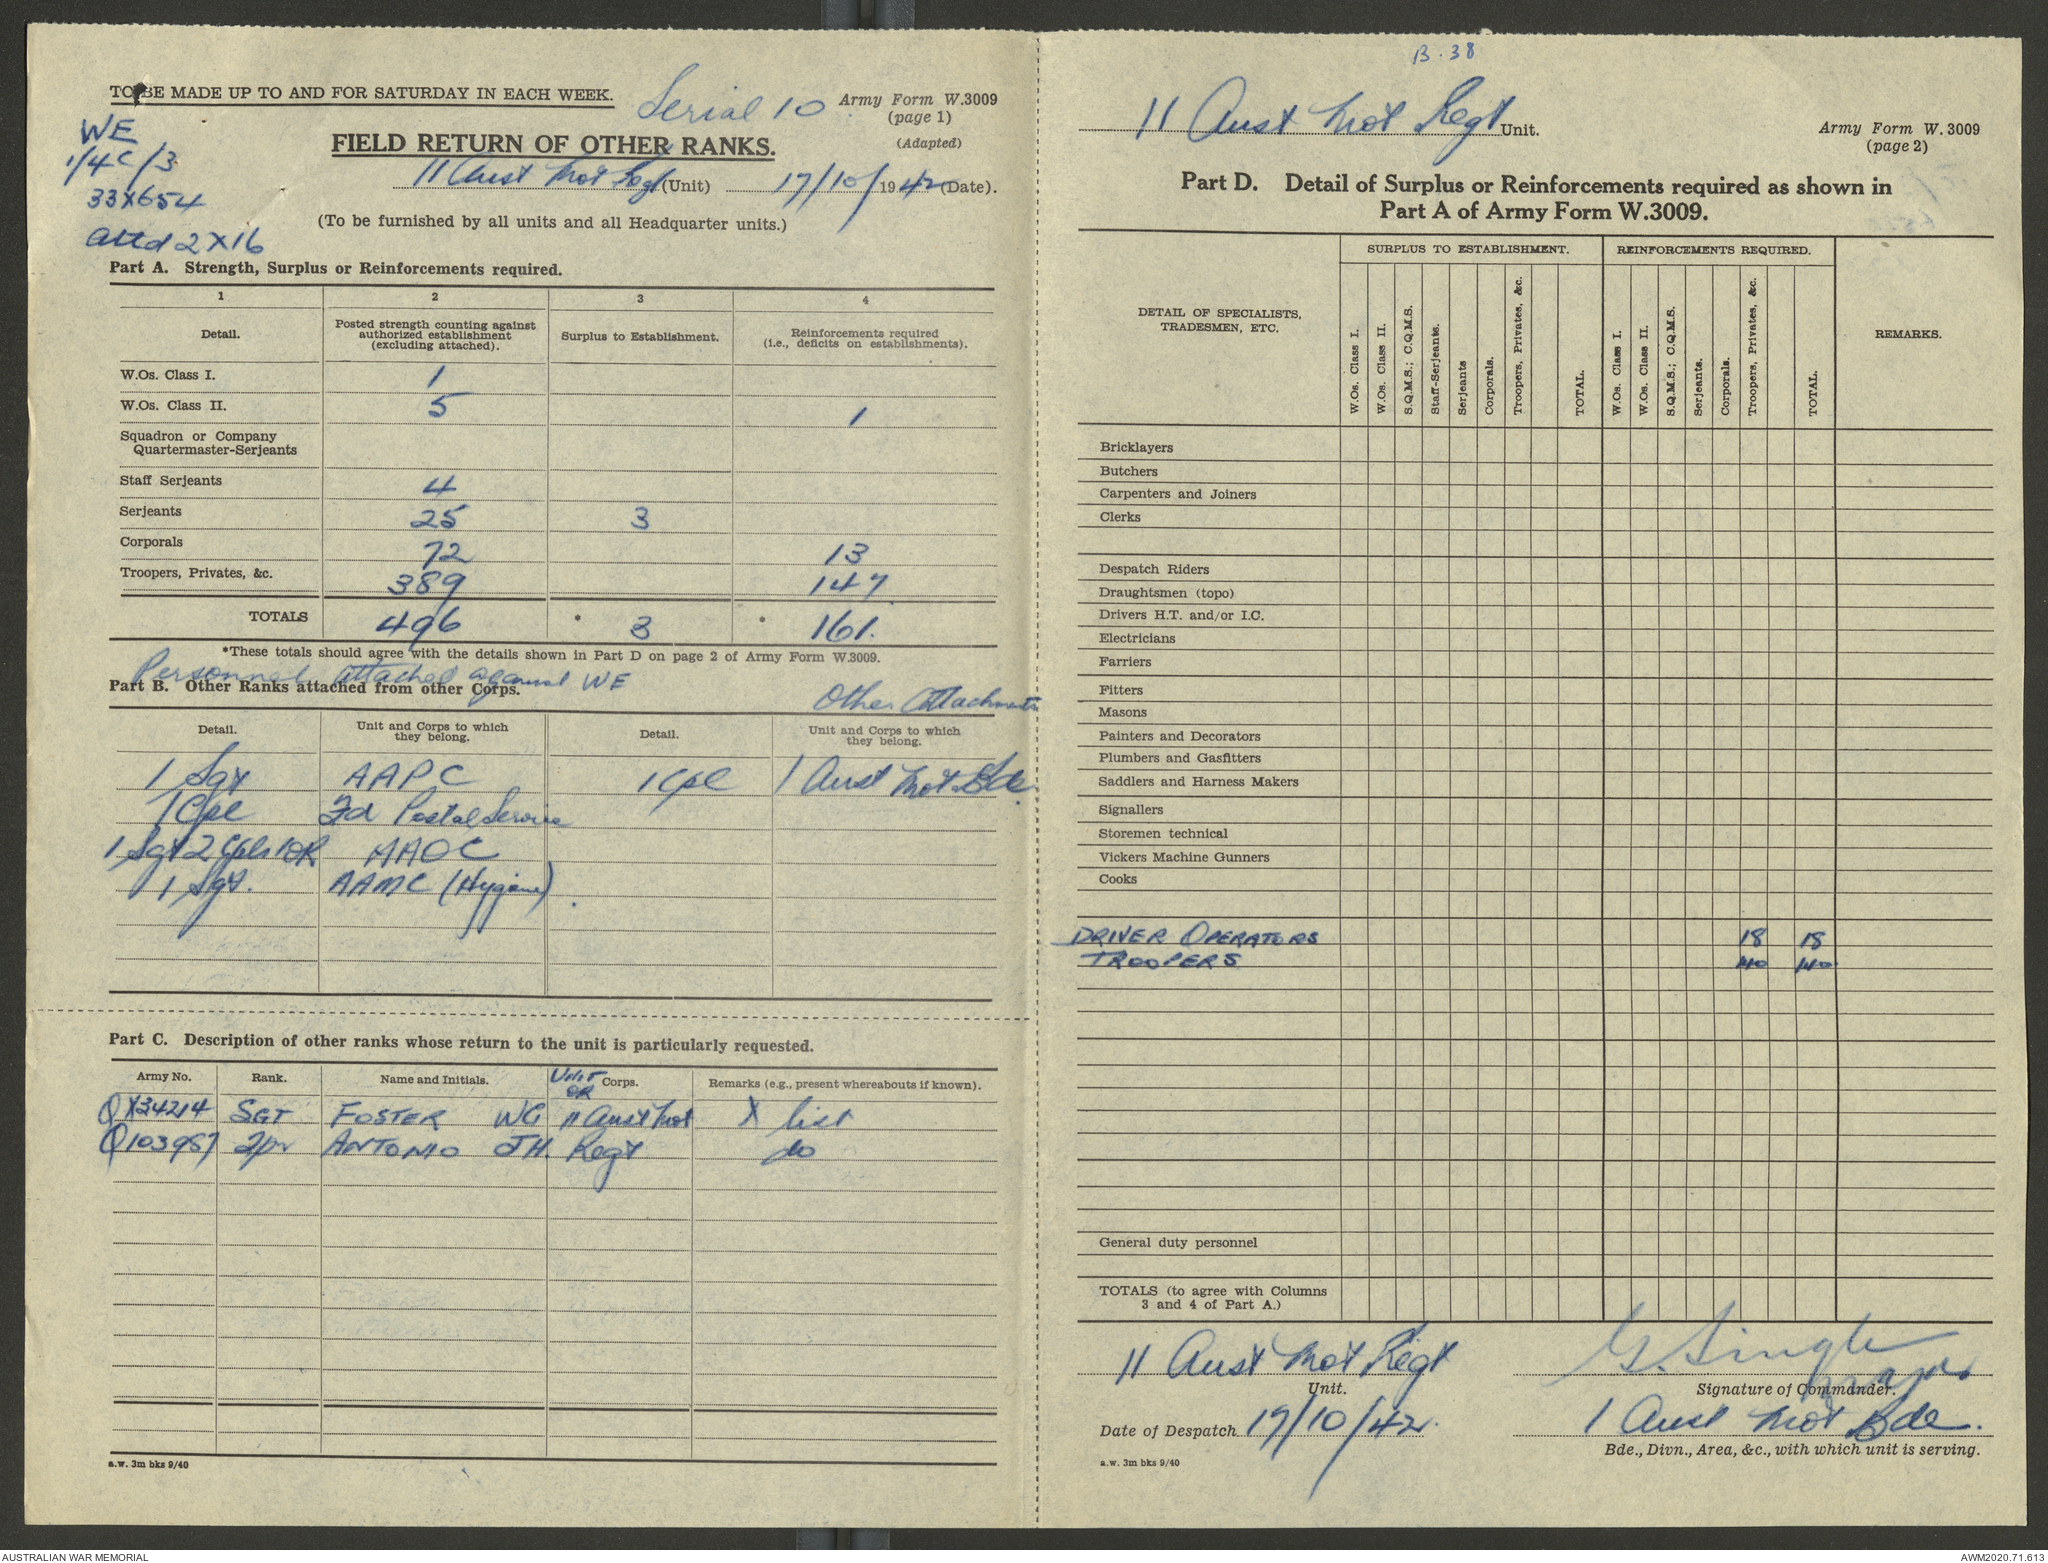 TO BE MADE UP TO AND FOR SATURDAY IN EACH WEEK.
Serial 10
Army Form W.3009
(page 1)
(Adapted)
WE
1/4C/3
33X654
attd 2X16
FIELD RETURN OF OTHER RANKS.
11 Aust Mot Regt (Unit) 17/10/1942 (Date).
(To be furnished by all units and all Headquarter units.)
Part A. Strength, Surplus or Reinforcements required.
1 2 3 4
Detail. Posted strength counting against authorized establishment (excluding attached). Surplus to Establishment. Reinforcements required (i.e., deficits on establishments).
W.Os. Class I. 1
W.Os. Class II. 5 1
Squadron or Company
Quartermaster-Serjeants
Staff Serjeants 4
Serjeants 25 3
Corporals 72 13
Troopers, Privates, &c. 389 147
TOTALS 496 * 3 * 161.
*These totals should agree with the details shown in Part D on page 2 of Army Form W.3009.
Personnel attached against WE
Part B. Other Ranks attached from other Corps.
Other Attachments
Detail. Unit and Corps to which they belong. Detail. Unit and Corps to which they belong.
1 Sgt AAPC 1 Cpl 1 Aust Mot Bde
1 Cpl Fd Postal Service
1 Sgt 2 Cpls 1 OR AAOC
1 Sgt. AAMC (Hygiene)
Part C. Description of other ranks whose return to the unit is particularly requested.
Army No. Rank. Name and Initials. UNIT OR Corps. Remarks (e.g., present whereabouts if known).
QX34214 SGT FOSTER WG 11 Aust Mot X list
Q103987 Tpr ANTONIO JH. Regt do
a.w. 3m bks 9/40
B.38
11 Aust Mot Regt Unit.
Army Form W.3009
(page 2)
Part D. Detail of Surplus or Reinforcements required as shown in
Part A of Army Form W.3009.
DETAIL OF SPECIALISTS, TRADESMEN, ETC. SURPLUS TO ESTABLISHMENT. REINFORCEMENTS REQUIRED. REMARKS.
W.Os. Class I. W.Os. Class II. S.Q.M.S.; C.Q.M.S. Staff-Serjeants. Serjeants Corporals. Troopers, Privates, &c. TOTAL. W.Os. Class I. W.Os. Class II. S.Q.M.S.; C.Q.M.S. Serjeants. Corporals. Troopers, Privates, &c. TOTAL.
Bricklayers
Butchers
Carpenters and Joiners
Clerks
Despatch Riders
Draughtsmen (topo)
Drivers H.T. and/or I.C.
Electricians
Farriers
Fitters
Masons
Painters and Decorators
Plumbers and Gasfitters
Saddlers and Harness Makers
Signallers
Storemen technical
Vickers Machine Gunners
Cooks
DRIVER OPERATORS 18 18
TROOPERS 140 140
General duty personnel
TOTALS (to agree with Columns
3 and 4 of Part A.)
11 Aust Mot Regt
Unit.
G. Single Major
Signature of Commander.
Date of Despatch 19/10/42.
1 Aust Mot Bde.
Bde., Divn., Area, &c., with which unit is serving.
a.w. 3m bks 9/40
AUSTRALIAN WAR MEMORIAL
AWM2020.71.613